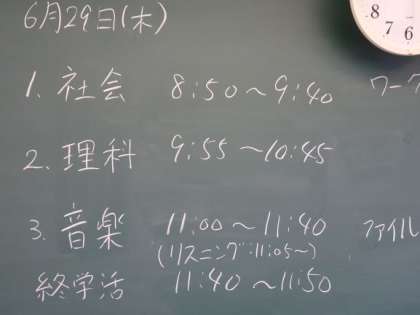 6月29日(木)
8
7 6
1. 社会 8:50～9:40 ワーク
2. 理科 9:55～10:45
3. 音楽 11:00～11:40 ファイル
(リスニング:11:05～)
終学活 11:40～11:50